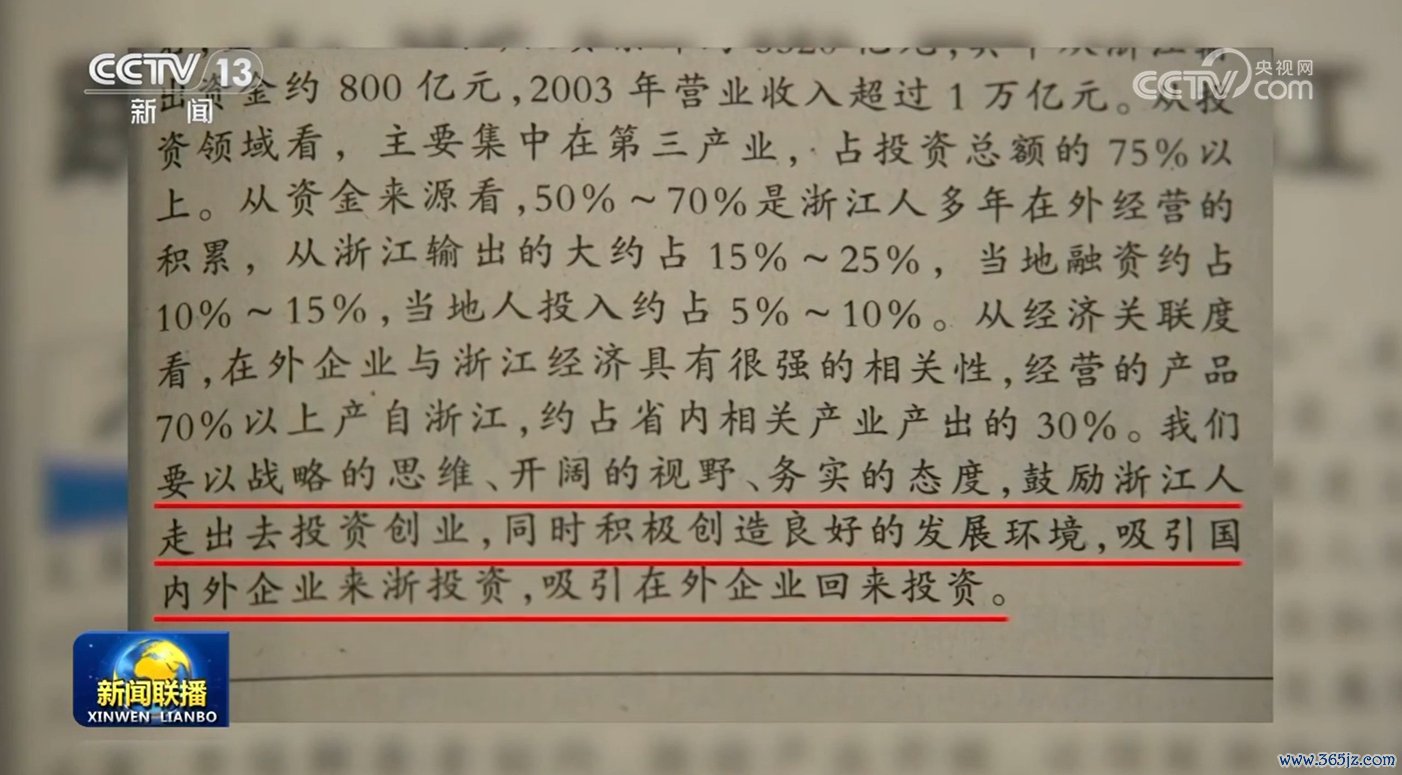 CCTV 13
新闻
CCTV.com
央视网
出资金约 800 亿元,2003 年营业收入超过 1 万亿元。从投
资领域看，主要集中在第三产业，占投资总额的 75%以
上。从资金来源看,50%～70%是浙江人多年在外经营的
积累，从浙江输出的大约占 15%～25%，当地融资约占
10%～15%,当地人投入约占 5%～10%。从经济关联度
看,在外企业与浙江经济具有很强的相关性,经营的产品
70%以上产自浙江,约占省内相关产业产出的 30%。我们
要以战略的思维、开阔的视野、务实的态度,鼓励浙江人
走出去投资创业,同时积极创造良好的发展环境,吸引国
内外企业来浙投资,吸引在外企业回来投资。
新闻联播
XINWEN LIANBO
www.365jz.com